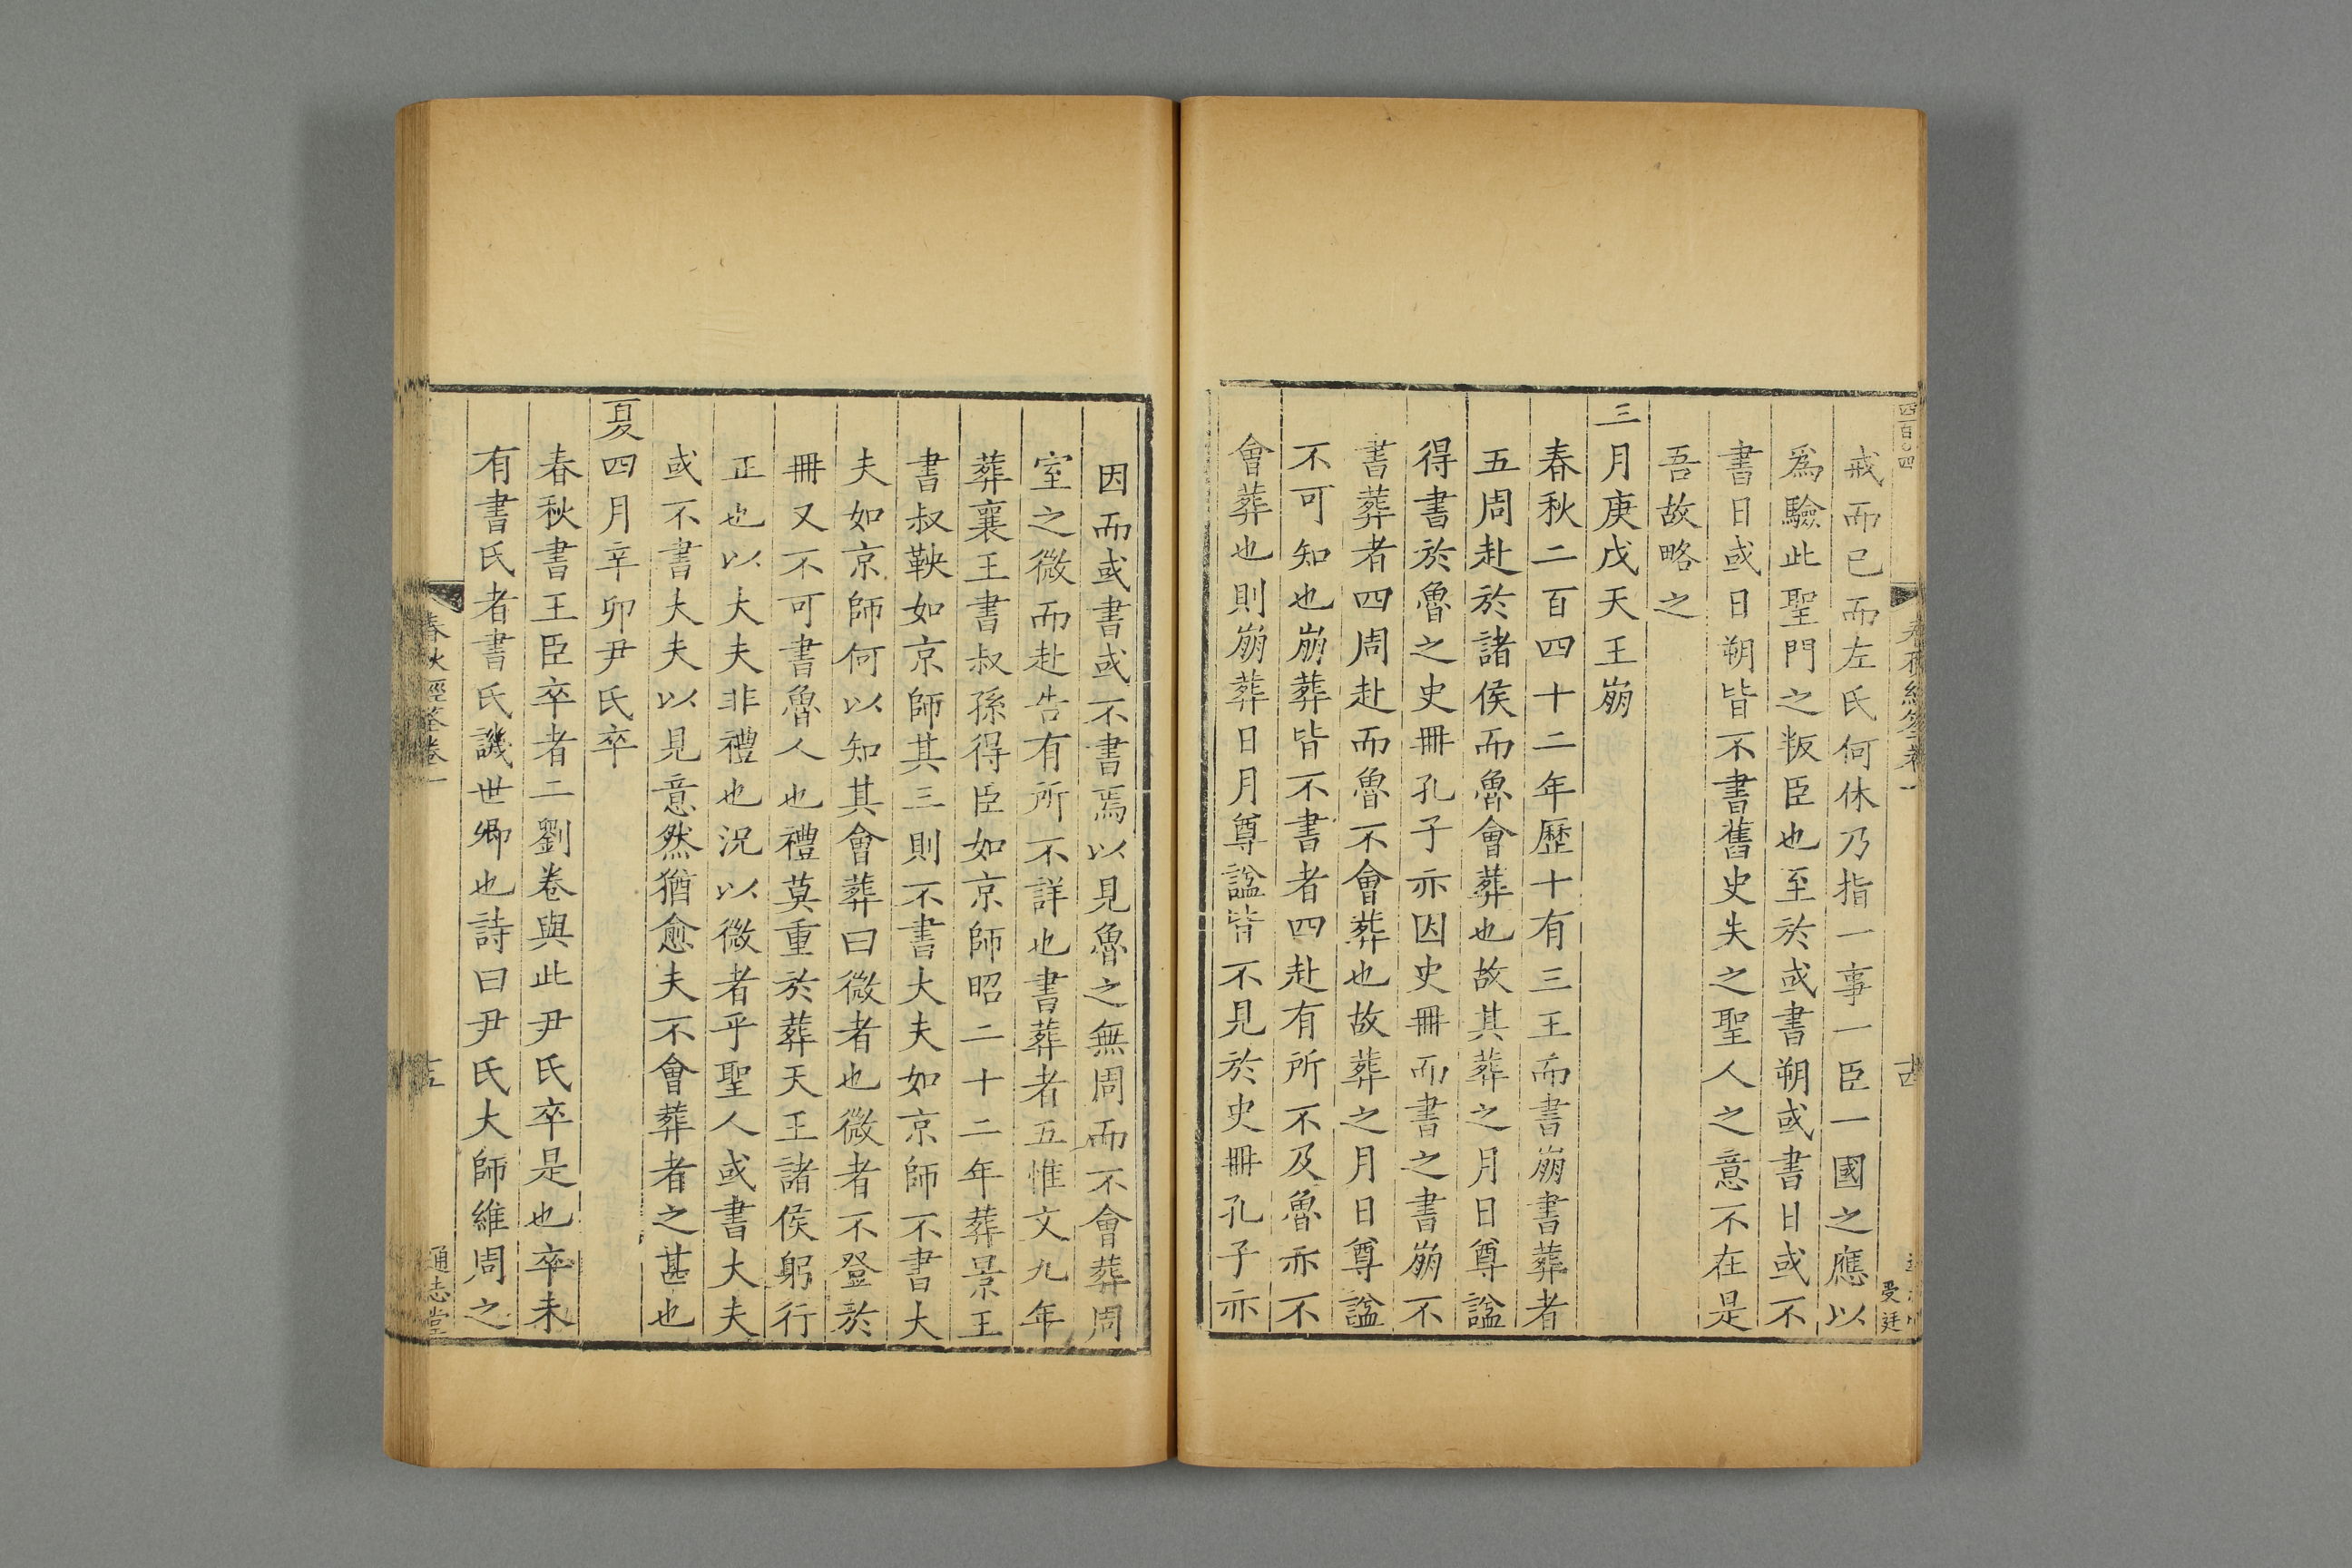 四百〇四
戒而已而左氏何休乃指一事一臣一國之應以
爲驗此聖門之叛臣也至於或書朔或書日或不
書日或日朔皆不書舊史失之聖人之意不在是
吾故略之
三月庚戌天王崩
春秋二百四十二年歷十有三王而書崩書葬者
五周赴於諸侯而魯會葬也故其葬之月日尊諡
得書於魯之史冊孔子亦因史冊而書之書崩不
書葬者四周赴而魯不會葬也故葬之月日尊諡
不可知也崩葬皆不書者四赴有所不及魯亦不
會葬也則崩葬日月尊諡皆不見於史冊孔子亦
因而或書或不書焉以見魯之無周而不會葬周
室之微而赴告有所不詳也書葬者五惟文九年
葬襄王書叔孫得臣如京師昭二十二年葬景王
書叔鞅如京師其三則不書大夫如京師不書大
夫如京師何以知其會葬曰微者也微者不登於
冊又不可書魯人也禮莫重於葬天王諸侯躬行
正也以大夫非禮也況以微者乎聖人或書大夫
或不書大夫以見意然猶愈夫不會葬者之甚也
夏四月辛卯尹氏卒
春秋書王臣卒者二劉卷與此尹氏卒是也卒未
有書氏者書氏譏世卿也詩曰尹氏大師維周之
春秋經筌卷一
通志堂